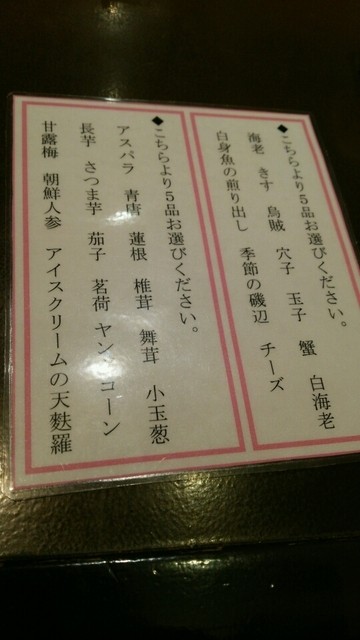 ◆こちらより5品お選びください。
海老 きす 烏賊 穴子 玉子 蟹 白海老
白身魚の煎り出し 季節の磯辺 チーズ
◆こちらより5品お選びください。
アスパラ 青唐 蓮根 椎茸 舞茸 小玉葱
長芋 さつま芋 茄子 茗荷 ヤングコーン
甘露梅 朝鮮人参 アイスクリームの天麩羅